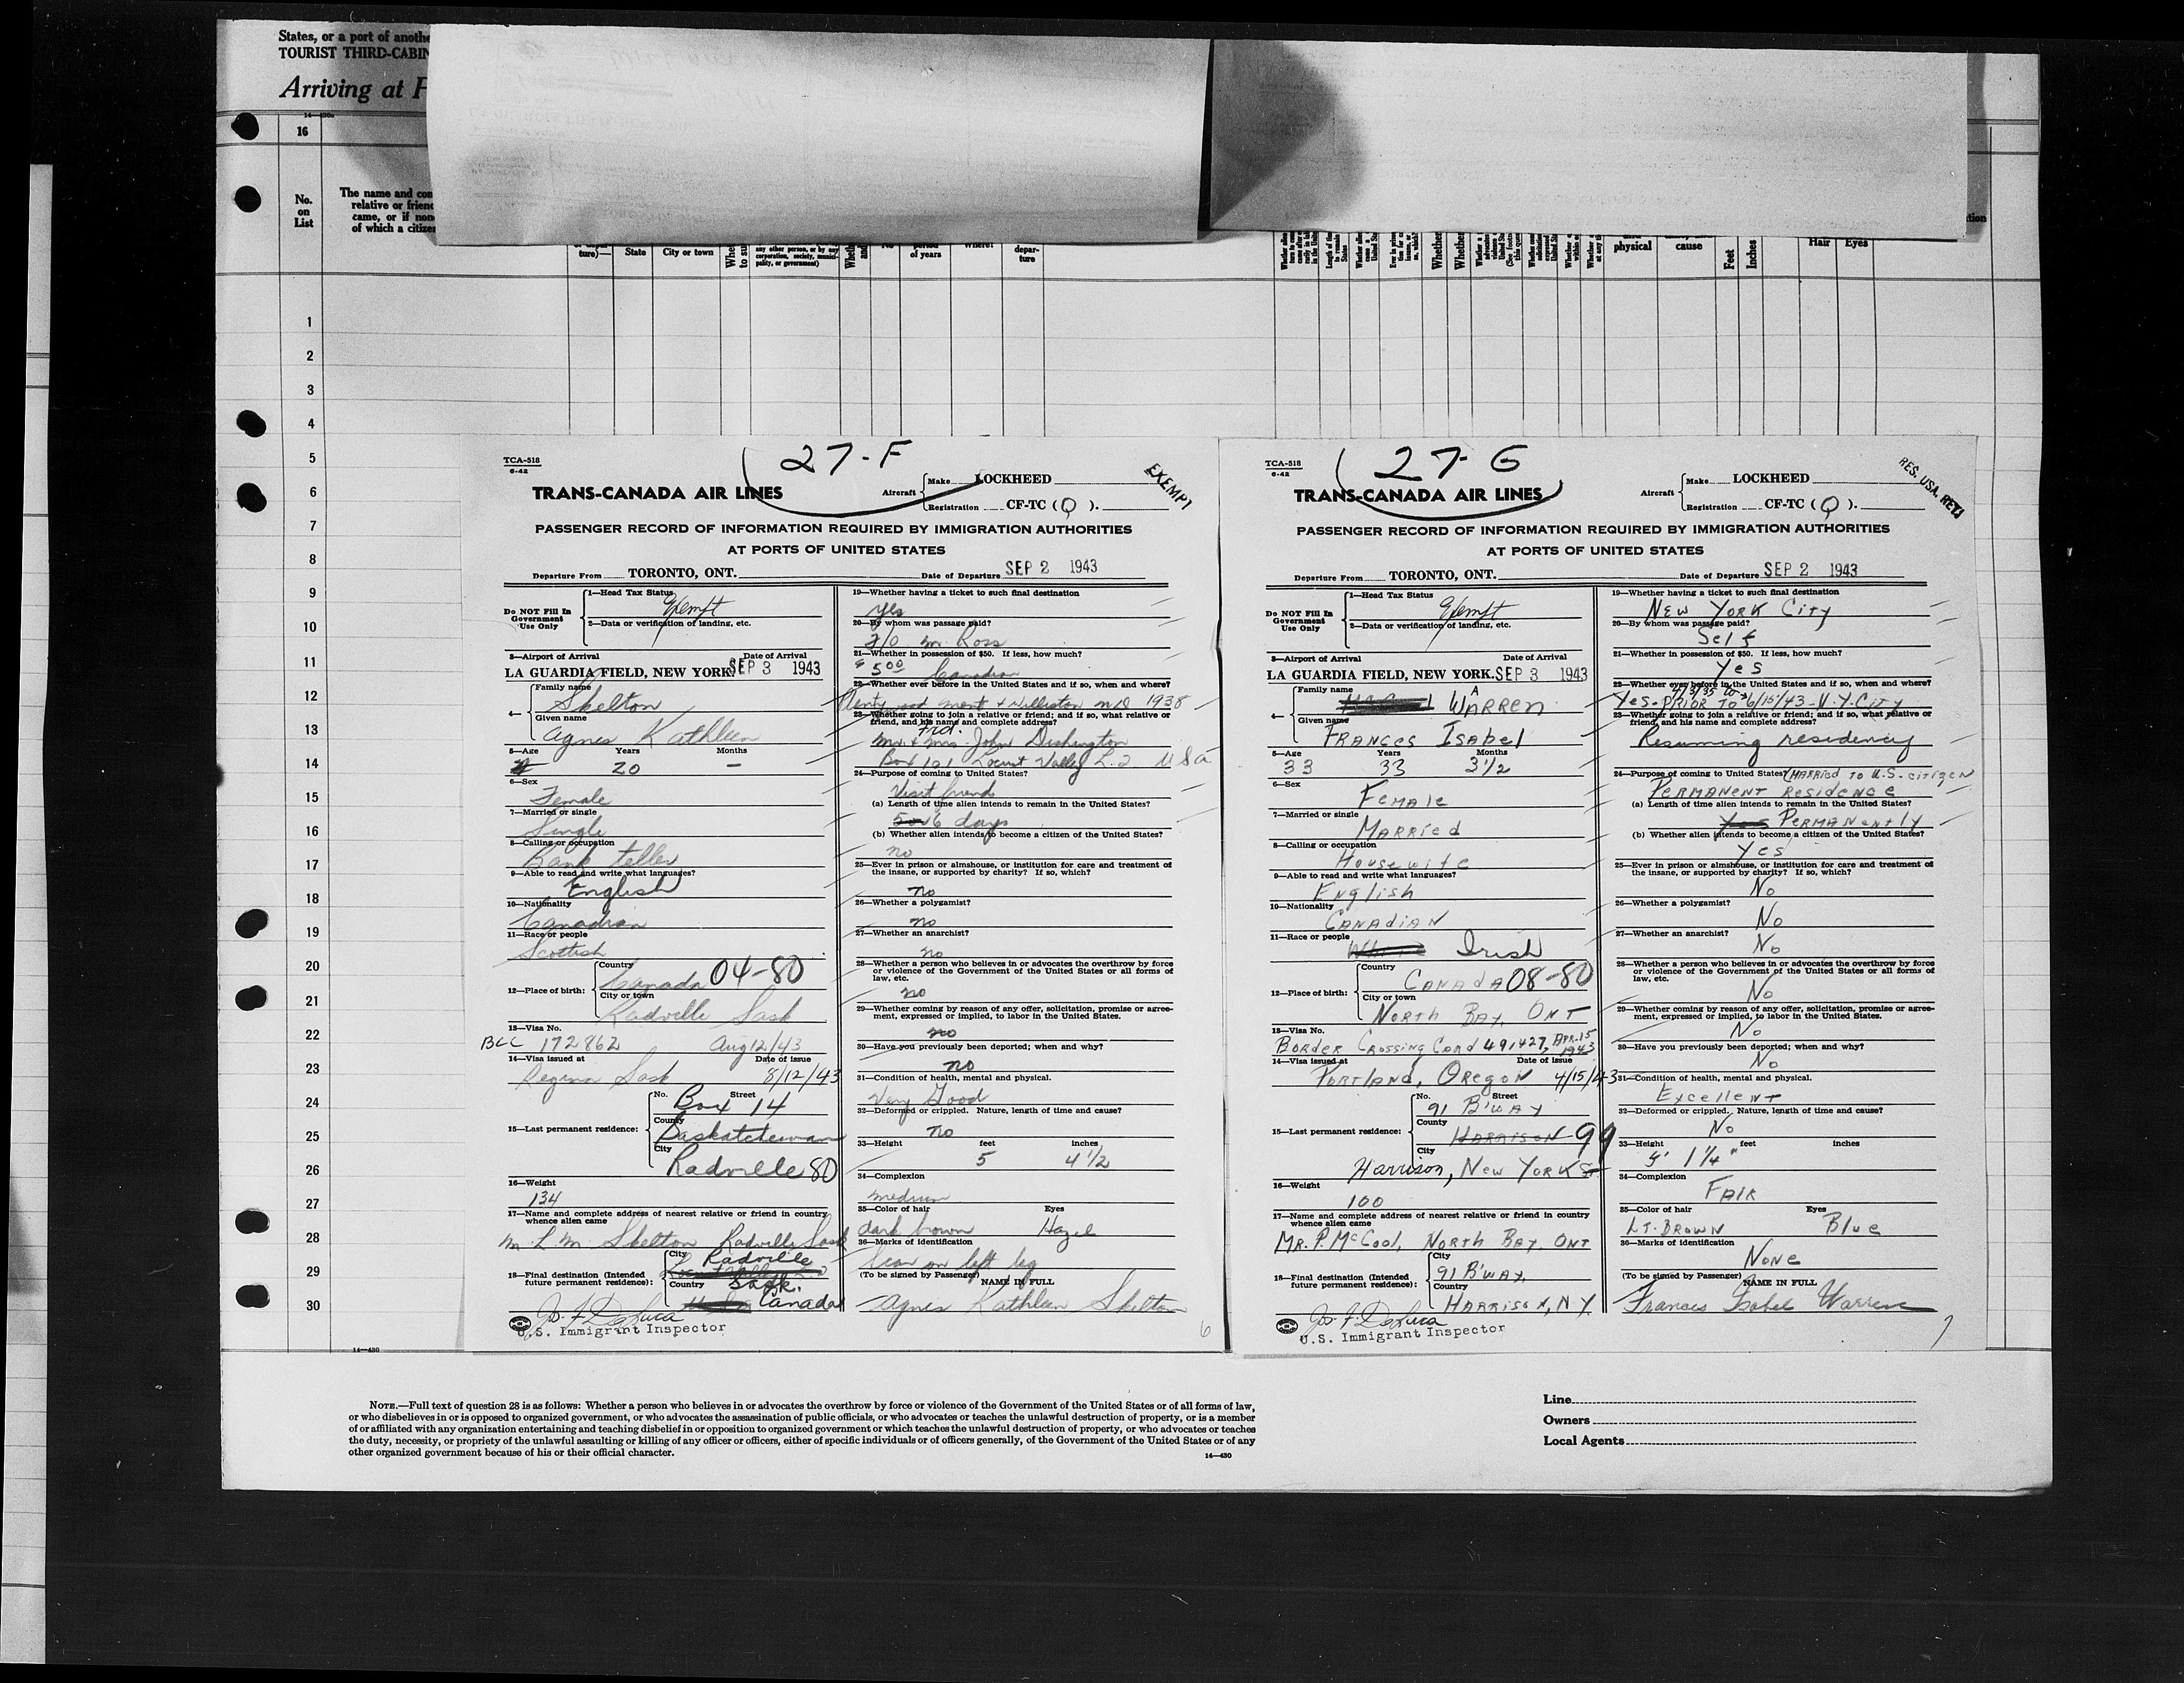 States, or a port of anothe
TOURIST THIRD-CABIN
Arriving at
14-430a
16
No.
on
List
The name and com
relative or friend
came, or if non
of which a citize
ture)—
State
City or town
any other person, or by any
corporation, society, munici-
pality, or government)
period
of years
Where?
depar-
ture
physical
cause
Feet
Inches
Hair
Eyes
1
2
3
4
5
6
7
8
9
10
11
12
13
14
15
16
17
18
19
20
21
22
23
24
25
26
27
28
29
30
14-430
TCA-518
6-42
27-F
EXEMPT
TRANS-CANADA AIR LINES
Aircraft
Make LOCKHEED
Registration CF-TC (Q).
PASSENGER RECORD OF INFORMATION REQUIRED BY IMMIGRATION AUTHORITIES
AT PORTS OF UNITED STATES
Departure From TORONTO, ONT. Date of Departure SEP 2 1943
Do NOT Fill In
Government
Use Only
1—Head Tax Status
Exempt
2—Data or verification of landing, etc.
3—Airport of Arrival Date of Arrival
LA GUARDIA FIELD, NEW YORK. SEP 3 1943
4— Family name
Skelton
Given name
Agnes Kathleen
5—Age Years Months
20 —
6—Sex
Female
7—Married or single
Single
8—Calling or occupation
Bank teller
9—Able to read and write what languages?
English
10—Nationality
Canadian
11—Race or people
Scottish
12—Place of birth: Country
Canada 04-80
City or town
Radville Sask
13—Visa No.
BCC 172862 Aug 12/43
14—Visa issued at Date of issue
Regina Sask 8/12/43
15—Last permanent residence: No. Street
Box 14
County
Saskatchewan
City
Radville 80
16—Weight
134
17—Name and complete address of nearest relative or friend in country
whence alien came
M. L. M. Skelton Radville Sask
18—Final destination (Intended
future permanent residence): City
Radville
Country
Sask.
Canada
U.S. Immigrant Inspector
19—Whether having a ticket to such final destination
Yes
20—By whom was passage paid?
Mr Ross
21—Whether in possession of $50. If less, how much?
$500 Canadian
22—Whether ever before in the United States and if so, when and where?
Plentywood Mont & Williston ND 1938
23—Whether going to join a relative or friend; and if so, what relative or
friend, and his name and complete address?
Frd.
Mr. & Mrs. John Dishington
Box 101 Locust Valley L.I. USA
24—Purpose of coming to United States?
Visit friends
(a) Length of time alien intends to remain in the United States?
5 or 6 days
(b) Whether alien intends to become a citizen of the United States?
no
25—Ever in prison or almshouse, or institution for care and treatment of
the insane, or supported by charity? If so, which?
no
26—Whether a polygamist?
no
27—Whether an anarchist?
no
28—Whether a person who believes in or advocates the overthrow by force
or violence of the Government of the United States or all forms of
law, etc.
no
29—Whether coming by reason of any offer, solicitation, promise or agree-
ment, expressed or implied, to labor in the United States.
no
30—Have you previously been deported; when and why?
no
31—Condition of health, mental and physical.
Very Good
32—Deformed or crippled. Nature, length of time and cause?
no
33—Height feet inches
5 4 1/2
34—Complexion
medium
35—Color of hair Eyes
dark brown Hazel
36—Marks of identification
Scar on left leg
(To be signed by Passenger) NAME IN FULL
Agnes Kathleen Skelton
6
TCA-518
6-42
27-G
RES. USA. RET
TRANS-CANADA AIR LINES
Aircraft
Make LOCKHEED
Registration CF-TC (Q).
PASSENGER RECORD OF INFORMATION REQUIRED BY IMMIGRATION AUTHORITIES
AT PORTS OF UNITED STATES
Departure From TORONTO, ONT. Date of Departure SEP 2 1943
Do NOT Fill In
Government
Use Only
1—Head Tax Status
Exempt
2—Data or verification of landing, etc.
3—Airport of Arrival Date of Arrival
LA GUARDIA FIELD, NEW YORK. SEP 3 1943
4— Family name
WARREN
Given name
FRANCES ISAbel
5—Age Years Months
33 33 3 1/2
6—Sex
FEMALE
7—Married or single
MARRied
8—Calling or occupation
Housewife
9—Able to read and write what languages?
English
10—Nationality
CANADIAN
11—Race or people
White Irish
12—Place of birth: Country
CANADA 08-80
City or town
NORTH BAY, ONT
13—Visa No.
Border Crossing Card 491427, Apr. 15 1943
14—Visa issued at Date of issue
PORTLAND, OREGON 4/15/43
15—Last permanent residence: No. Street
91 B'WAY
County
HARRISON 99
City
Harrison, New York
16—Weight
100
17—Name and complete address of nearest relative or friend in country
whence alien came
MR. P. McCool, NORTH BAY, ONT
18—Final destination (Intended
future permanent residence): City
91 B'WAY,
Country
HARRISON, N Y
U.S. Immigrant Inspector
19—Whether having a ticket to such final destination
NEW YORK CITY
20—By whom was passage paid?
Self
21—Whether in possession of $50. If less, how much?
Yes
22—Whether ever before in the United States and if so, when and where?
4/3/35 to
Yes-PRIOR TO 6/15/43-N.Y.CITY
23—Whether going to join a relative or friend; and if so, what relative or
friend, and his name and complete address?
Resuming residency
24—Purpose of coming to United States? (MARRied TO U.S. citizen
PERMANENT Residence
(a) Length of time alien intends to remain in the United States?
Yes PERMANENTLY
(b) Whether alien intends to become a citizen of the United States?
Yes
25—Ever in prison or almshouse, or institution for care and treatment of
the insane, or supported by charity? If so, which?
No
26—Whether a polygamist?
No
27—Whether an anarchist?
No
28—Whether a person who believes in or advocates the overthrow by force
or violence of the Government of the United States or all forms of
law, etc.
No
29—Whether coming by reason of any offer, solicitation, promise or agree-
ment, expressed or implied, to labor in the United States.
No
30—Have you previously been deported; when and why?
No
31—Condition of health, mental and physical.
Excellent
32—Deformed or crippled. Nature, length of time and cause?
No
33—Height feet inches
5' 1 1/4"
34—Complexion
FAIR
35—Color of hair Eyes
LT. BROWN Blue
36—Marks of identification
NONE
(To be signed by Passenger) NAME IN FULL
Frances Isabel Warren
7
NOTE.—Full text of question 28 is as follows: Whether a person who believes in or advocates the overthrow by force or violence of the Government of the United States or of all forms of law,
or who disbelieves in or is opposed to organized government, or who advocates the assassination of public officials, or who advocates or teaches the unlawful destruction of property, or is a member
of or affiliated with any organization entertaining and teaching disbelief in or opposition to organized government or which teaches the unlawful destruction of property, or who advocates or teaches
the duty, necessity, or propriety of the unlawful assaulting or killing of any officer or officers, either of specific individuals or of officers generally, of the Government of the United States or of any
other organized government because of his or their official character.
14-430
Line
Owners
Local Agents